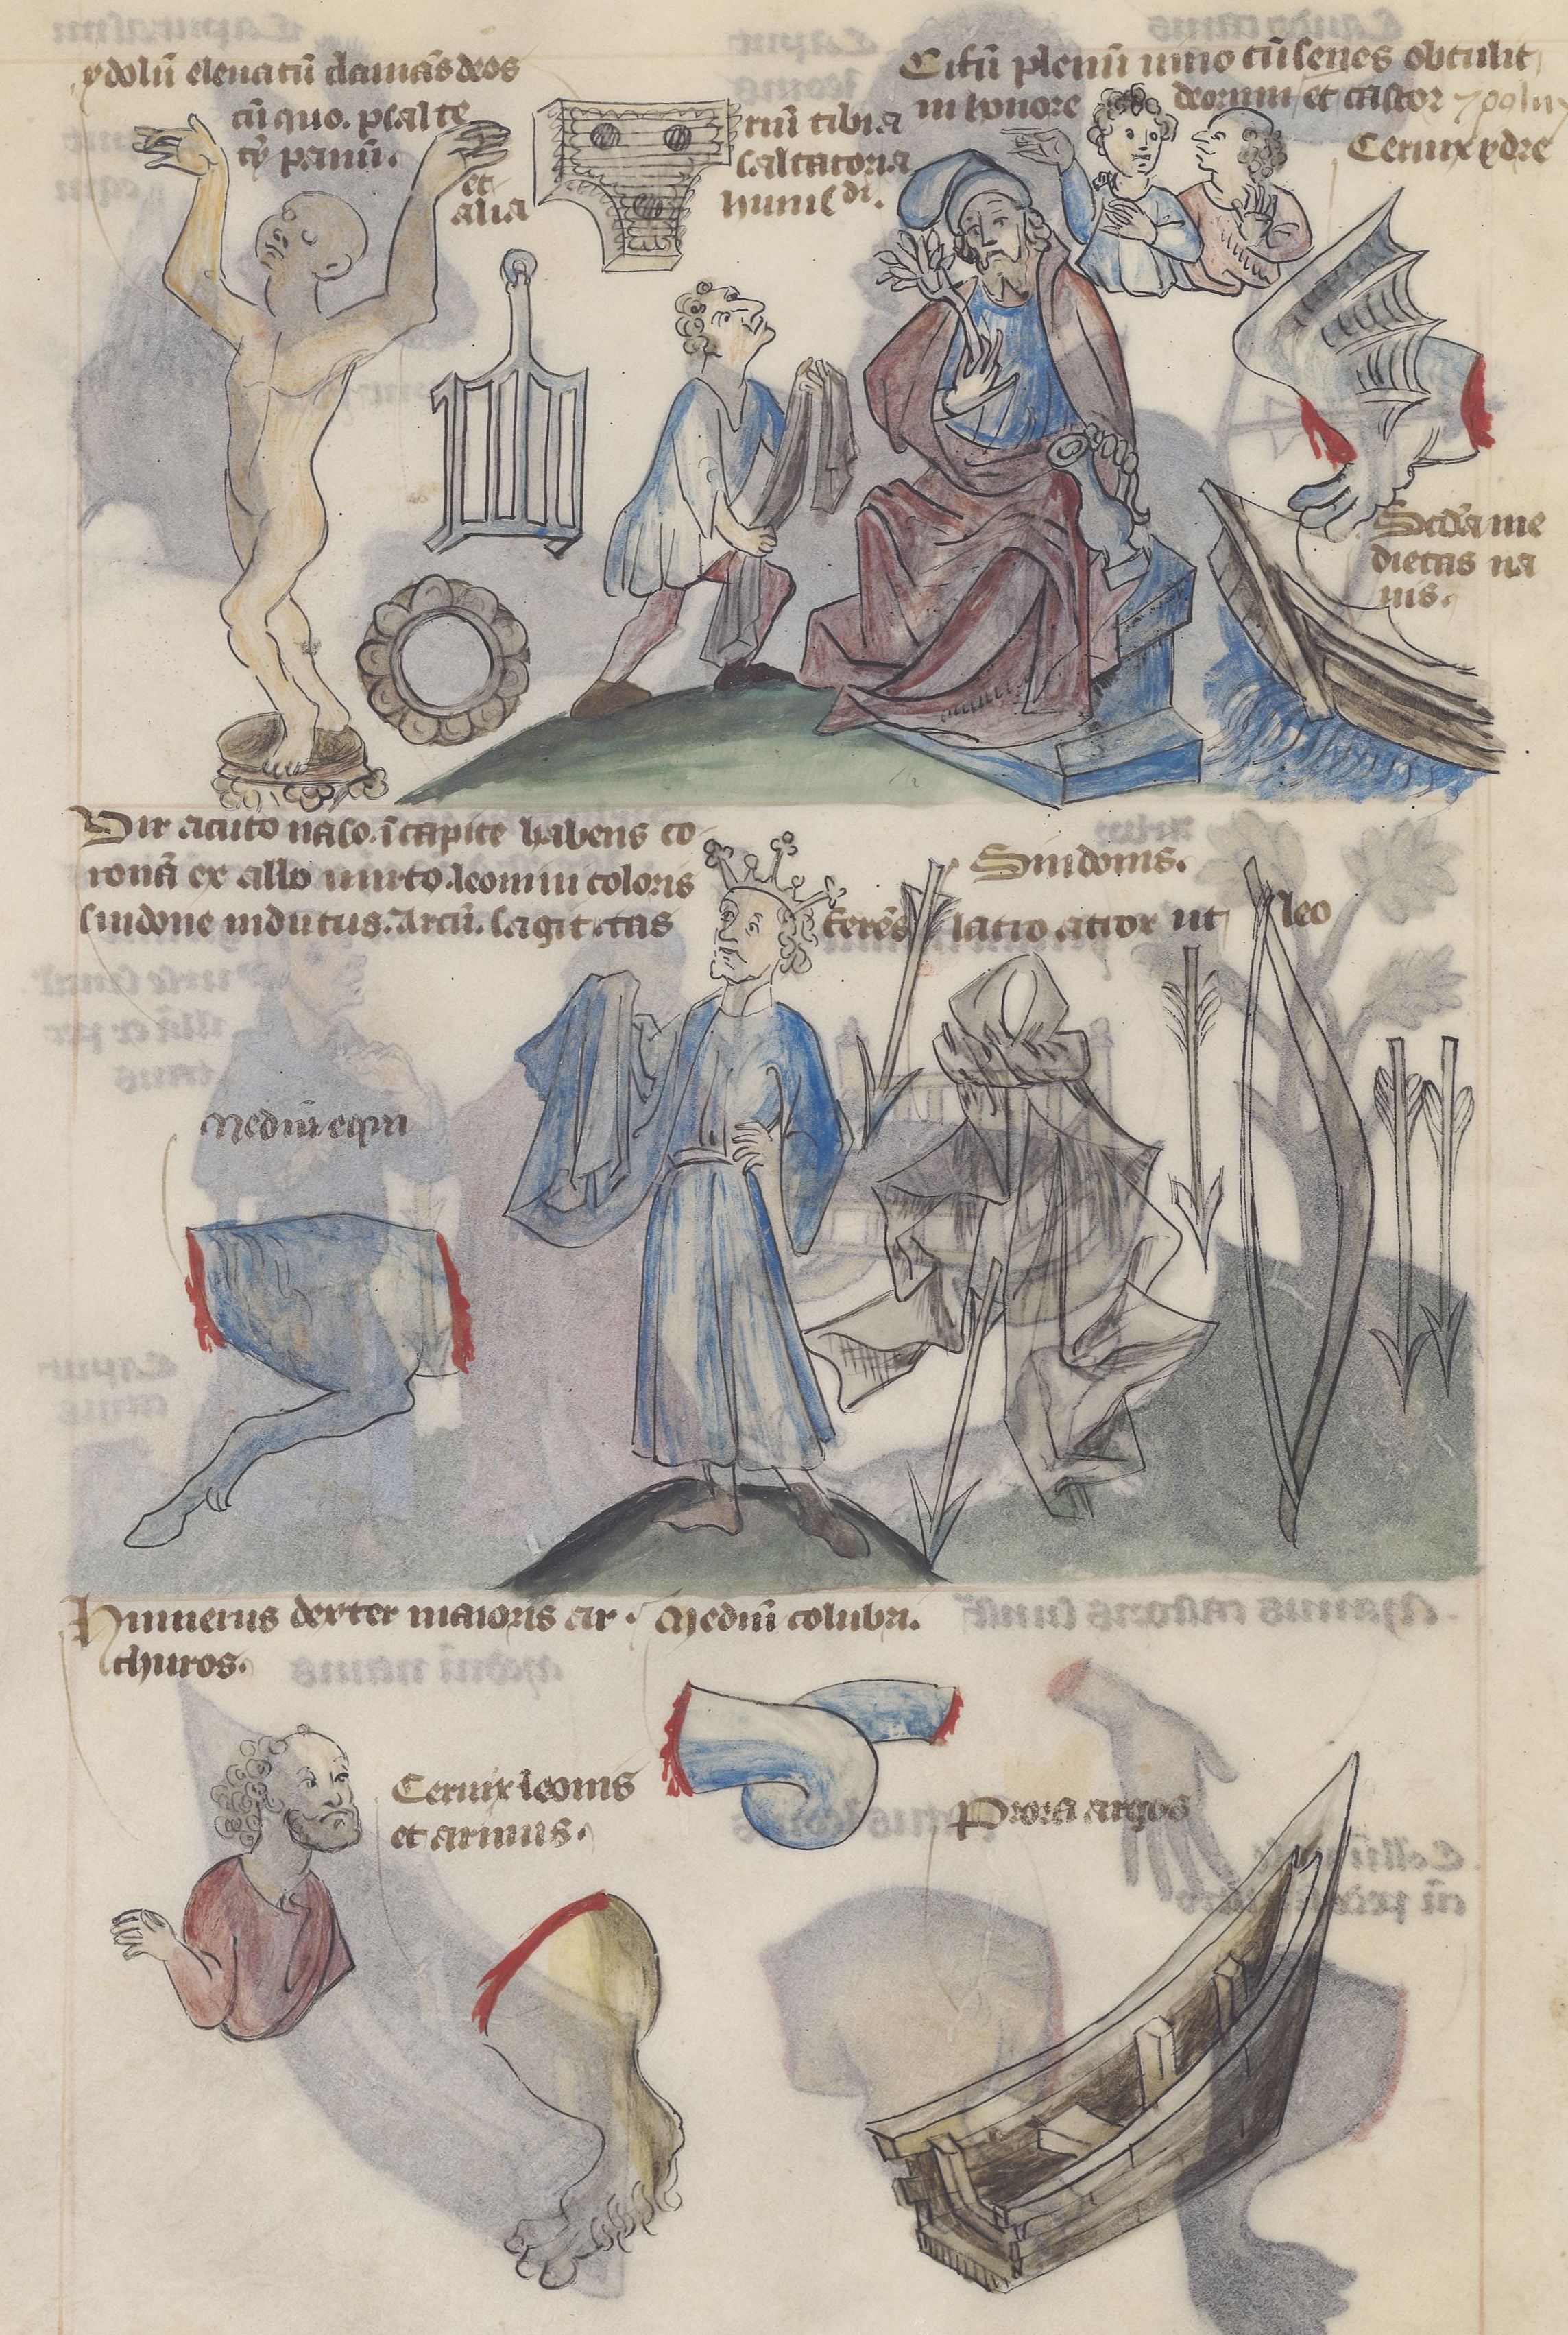 ydolū eleuatū clamās deos
cū quo. psalte
riū tibia
cȳpanū.
saltatoria
et
alia
humil di.
Cifū plenū uino cū senes obtulit
in honore deorum et castor
Ceruix ydre
Scďa me
dietas na
uis.
Vir acuto naso. ī capite habens co
ronā ex allo mirto. leonini coloris
sindone indutus. Arcū. sagittas
Sindonis.
ferēs latio atior ut leo
Mediū equi
Humerus dexter maioris ar
thuros.
Mediū colubri.
Ceruix leonis
et armus.
Prora argos